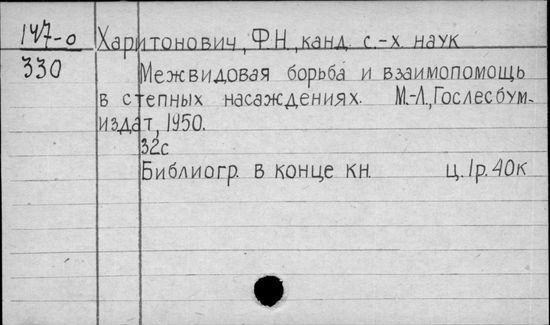 147-о Харитонович, Ф.Н., канд. с.-х. наук
330 Межвидовая борьба и взаимопомощь
в степных насаждениях. М.-Л., Гослесбум-
издат, 1950.
32с
Библиогр. в конце кн. ц. 1р. 40к